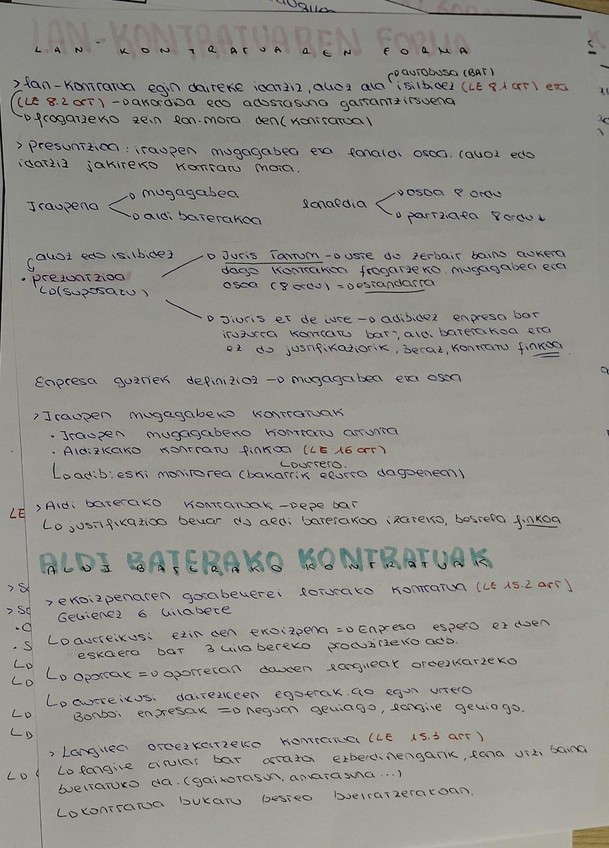 LAN-KONTRATUAREN FORMA
↳autobusa (BAT)
> lan-kontratua egin daiteke idatziz, ahoz ala isilbidez (LE 8.1 art) eta
(LE 8.2 art) -> akordioa edo adostasuna garrantzitsuena
↳ frogatzeko zein lan-mota den (kontratua)
> presuntzioa: iraupen mugagabea eta lanaldi osoa. (ahoz edo
idatziz jakiteko kontratu mota.
Iraupena < mugagabea
aldi baterakoa
lanaldia < osoa 8 ordu
partziala 8 ordu ↓
ahoz edo isilbidez
• presuntzioa
↳ (suposatu)
Juris Tantum -> uste du zerbait baino aukera
dago kontrakoa frogatzeko. mugagabea eta
osoa (8 ordu) => estandarra
Jiuris et de iure -> adibidez enpresa bat
iruzurra kontratu bat, aldi baterakoa eta
ez du justifikaziorik, beraz, kontratu finkoa
Enpresa guztiek definizioz -> mugagabea eta osoa
> Iraupen mugagabeko kontratuak
• Iraupen mugagabeko kontratu arrunta
• Aldizkako kontratu finkoa (LE 16 art)
↳ urtero.
↳ adib: eski monitorea (bakarrik elurra dagoenean)
> Aldi baterako kontratuak -> epe bat
↳ justifikazioa behar du aldi baterakoa izateko, bestela finkoa
ALDI BATERAKO KONTRATUAK
> ekoizpenaren gorabeherei loturako kontratua (LE 15.2 art)
Gehienez 6 hilabete
↳ aurreikusi ezin den ekoizpena => Enpresa espero ez duen
eskaera bat 3 hilabeteko produzitzeko adb.
↳ oporrak => oporretan dauden langileak ordezkatzeko
↳ aurreikusi daitezkeen egoerak. 90 egun urtero
Bonboi enpresak => neguan gehiago, langile gehiago.
> Langilea ordezkatzeko kontratua (LE 15.3 art)
↳ langile titular bat arrazoi ezberdinengatik, lana utzi baina
bueltatuko da. (gaixotasun, amatasuna ...)
↳ kontratua bukatu bestea bueltatzerakoan.